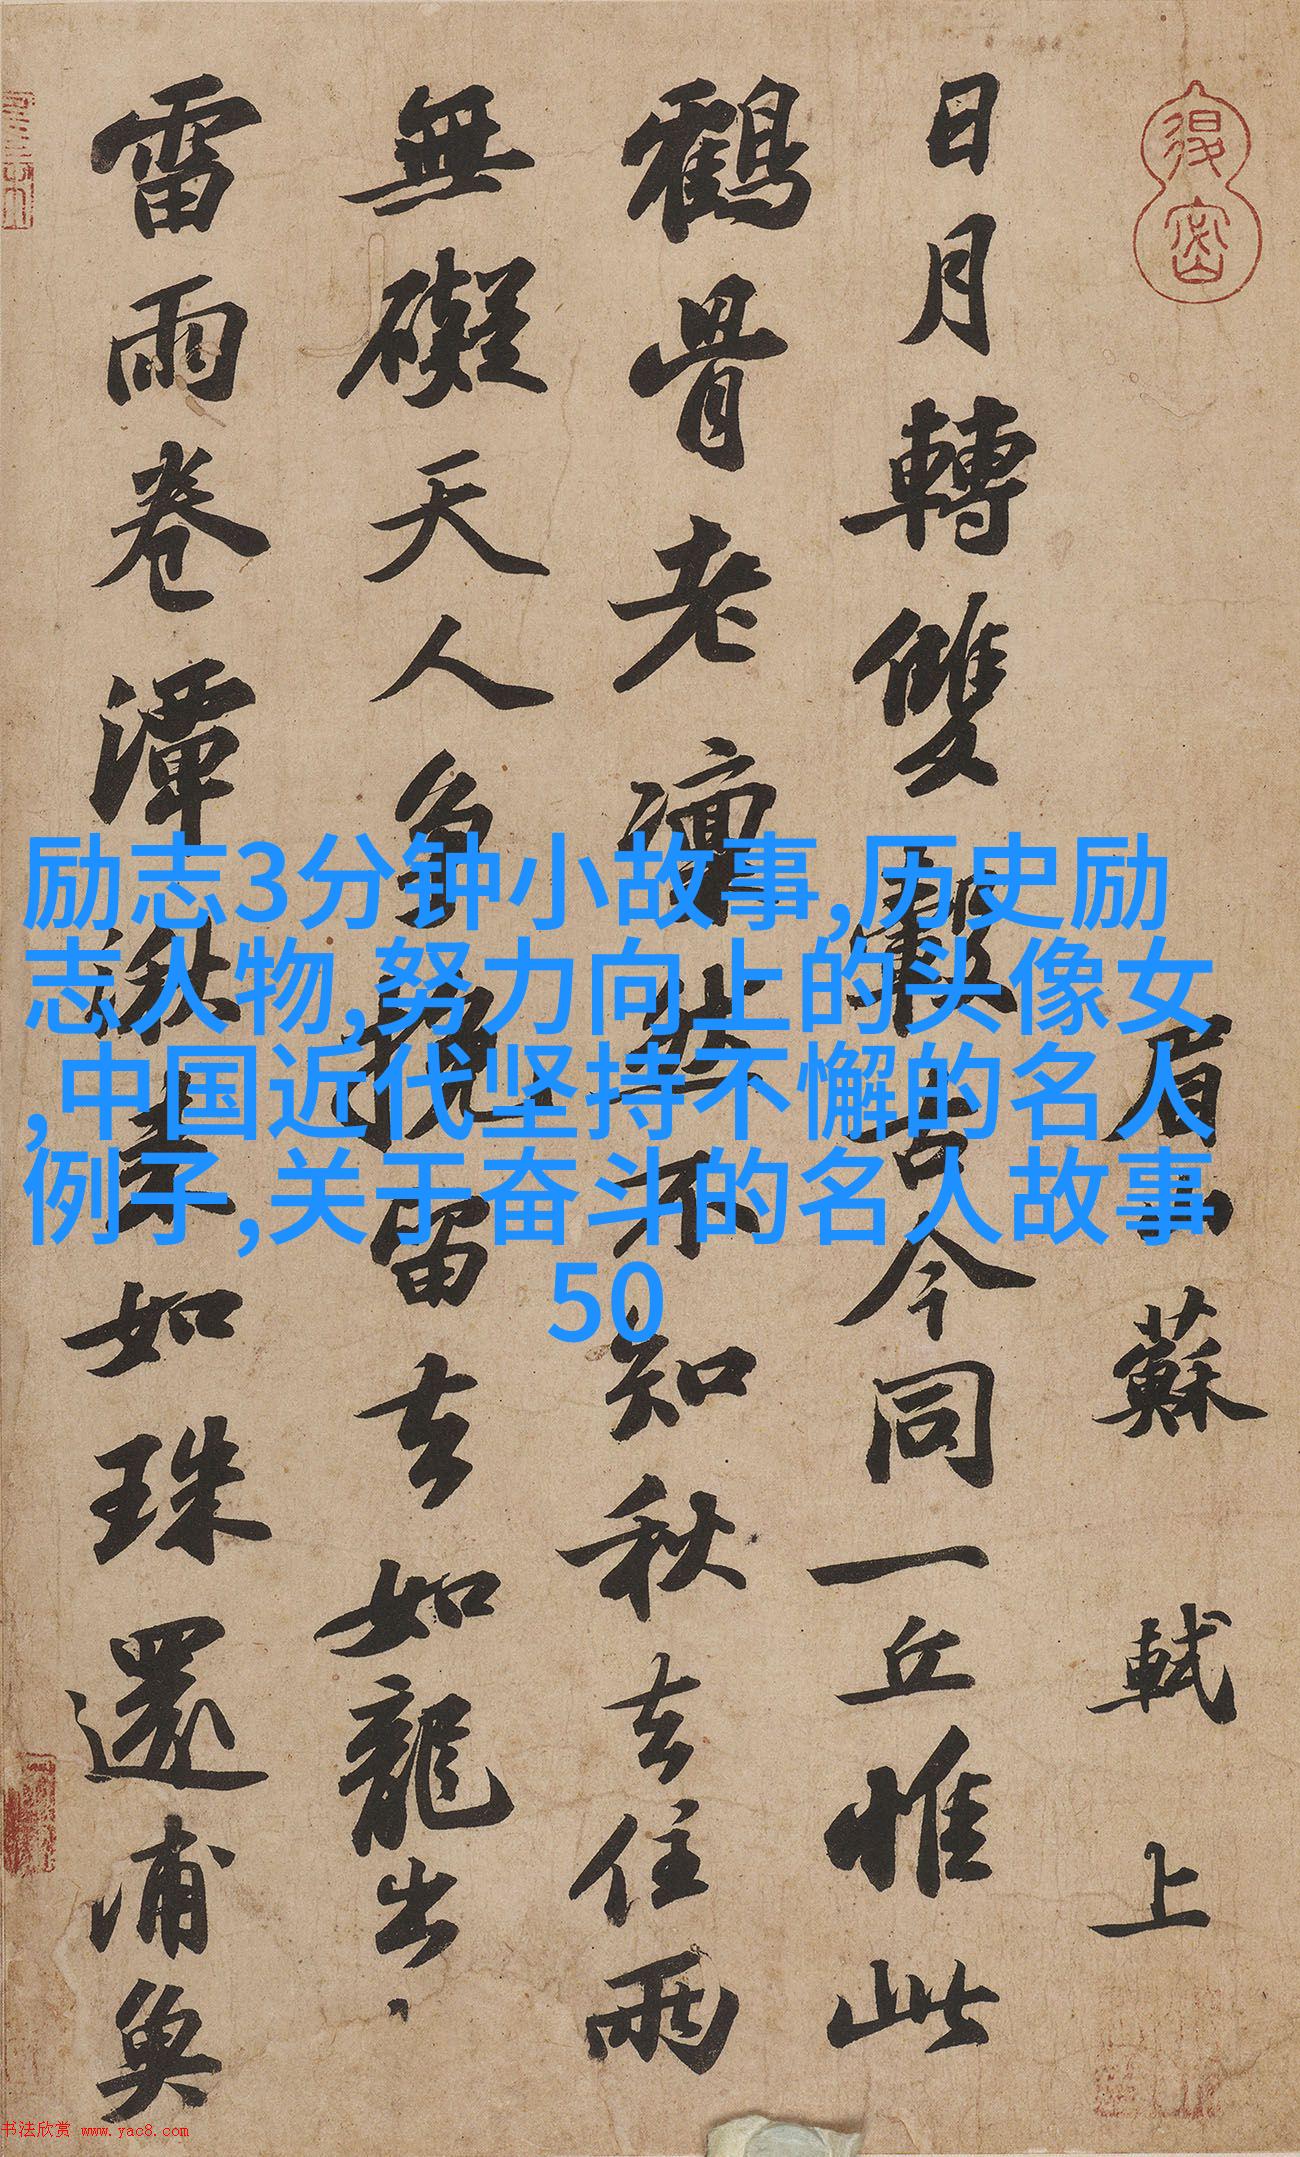 眉山蘇軾上
日月轉雙轂古今同一丘惟此
鶴骨老凜然不知秋去住兩
無礙天人争挽留去如龍出
雷雨卷潭湫来如珠還浦魚
励志3分钟小故事,历史励
志人物,努力向上的头像女
,中国近代坚持不懈的名人
例子,关于奋斗的名人故事
50
书法欣赏 www.yac8.com